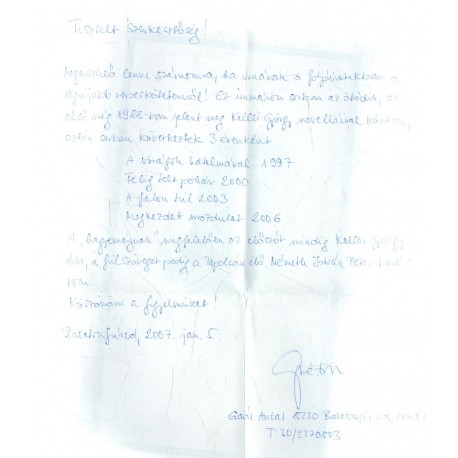 Tisztelt Szerkesztőség!
lenne számomra, ha írnának a folyóiratukban a
legújabb verseskötetemről! Ez immáron sorban az ötödik, az
első még 1988-ban jelent meg Kellei György novelláival közösen,
aztán sorban következtek 3 évenként
A virágok hatalmával 1997
Félig telt pohár 2000
A falon túl 2003
Megkezdett mozdulat 2006
A „hagyománynak” megfelelően az előszót mindig Kellei György
írta, a fülszöveget pedig a Tapolcán élő Németh István Péter
Köszönöm a figyelmüket!
Balatonfüred, 2007. jan. 5.
Gaál Antal 8230 Balatonfüred,
T: 30/2270803